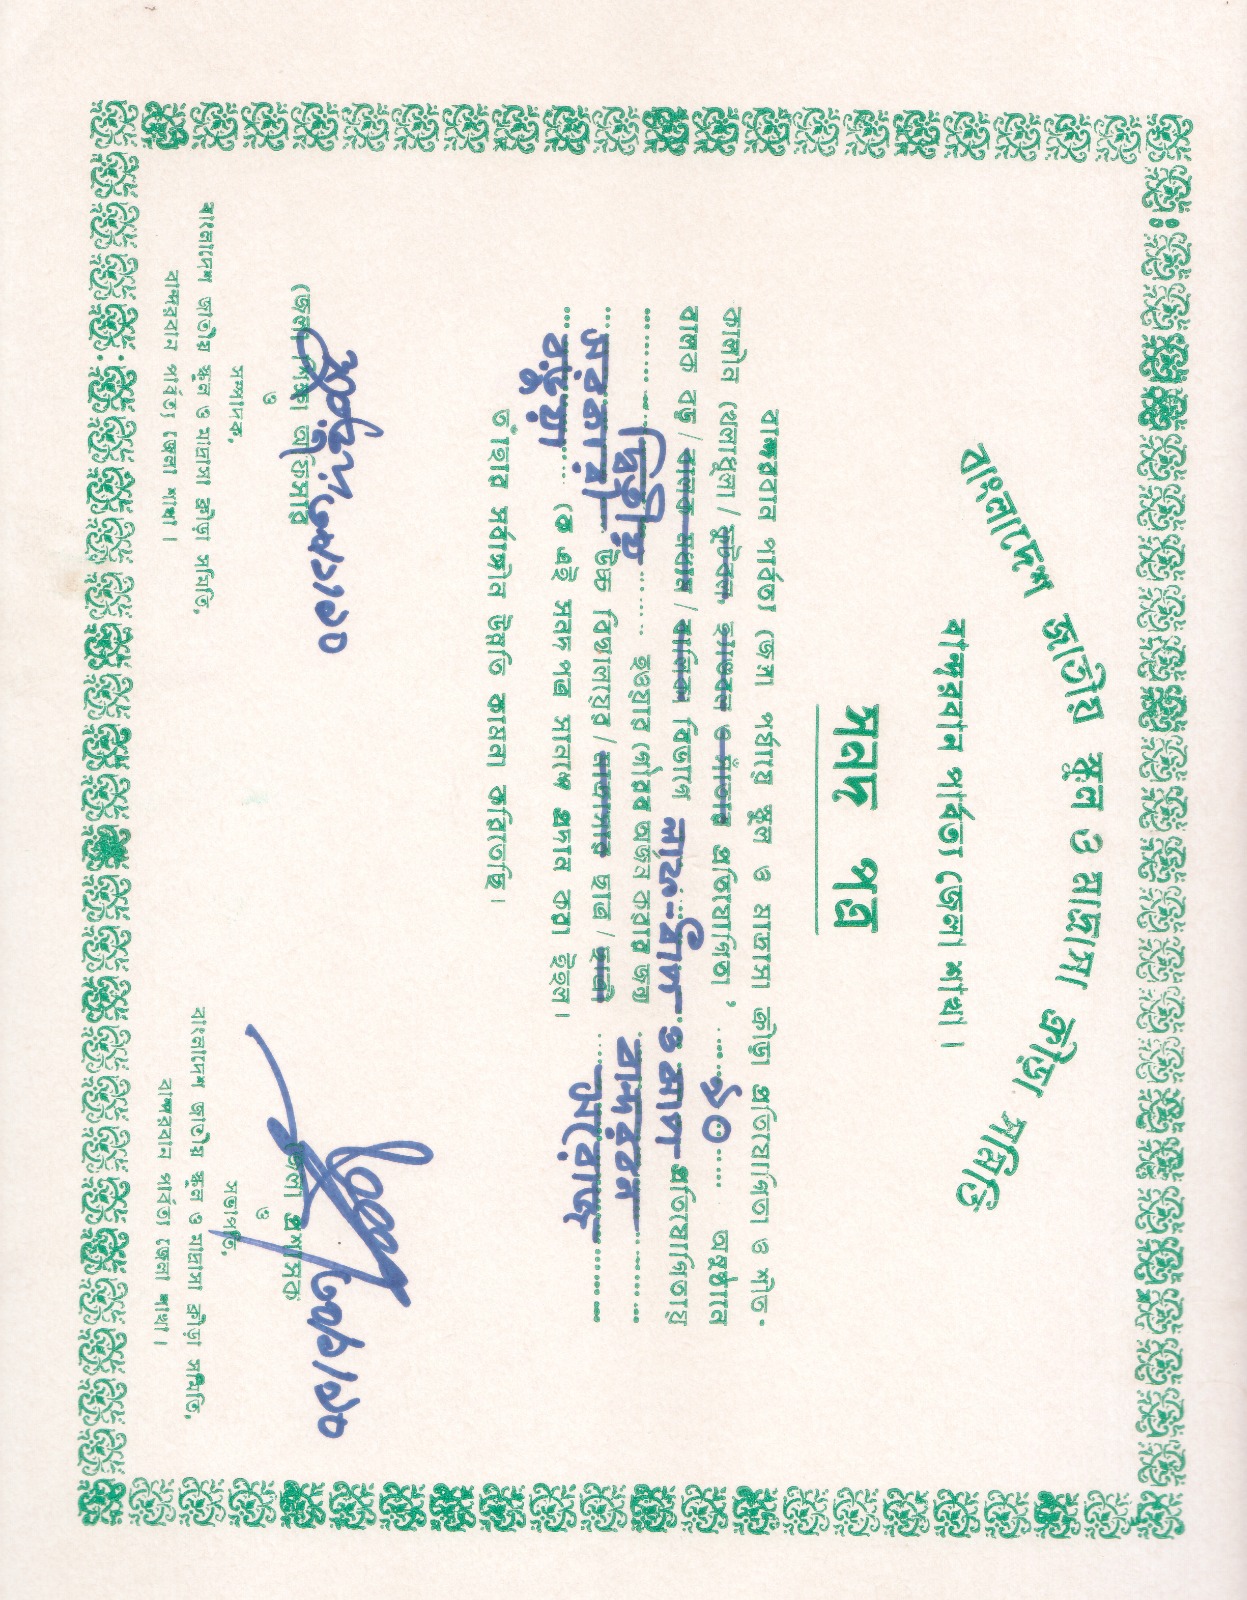 বাংলাদেশ জাতীয় স্কুল ও মাদ্রাসা ক্রীড়া সমিতি
বান্দরবান পার্বত্য জেলা শাখা।
সনদ পত্র
বান্দরবান পার্বত্য জেলা পর্যায়ে স্কুল ও মাদ্রাসা ক্রীড়া প্রতিযোগিতা ও শীত-
কালীন খেলাধূলা / ফুটবল, হ্যাণ্ডবল ও সাঁতার প্রতিযোগিতা ’ ৯০ অনুষ্ঠানে
বালক বড় / বালক মধ্যম / বালিকা বিভাগে লাফ-ধাপ ও ঝাপ প্রতিযোগিতায়
দ্বিতীয় হওয়ার গৌরব অর্জন করার জন্য বান্দরবন
সরকারী উচ্চ বিদ্যালয়ের / মাদ্রাসার ছাত্র / ছাত্রী সরোজ
বড়ুয়া কে এই সনদ পত্র সানন্দে প্রদান করা ইহল।
তাঁহার সর্বাঙ্গীন উন্নতি কামনা করিতেছি।
৩০/১/৯০
জেলা শিক্ষা অফিসার
ও
সম্পাদক,
বাংলাদেশ জাতীয় স্কুল ও মাদ্রাসা ক্রীড়া সমিতি,
বান্দরবান পার্বত্য জেলা শাখা।
৩০/১/৯০
জেলা প্রশাসক
ও
সভাপতি,
বাংলাদেশ জাতীয় স্কুল ও মাদ্রাসা ক্রীড়া সমিতি,
বান্দরবান পার্বত্য জেলা শাখা।